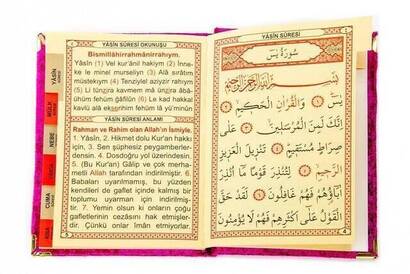 YÂSÎN SÛRESİ OKUNUŞU
Bismillâhirrahmânirrahıym.
Yâsîn (1) Vel kur'ânil hakiym (2) İnne-
ke le minel murseliyn (3) Alâ sırâtım
müstekıym (4) Tenziylel aziyzir rahiym
(5) Li tünzira kavmem mâ ünzira âbâ-
ühüm fehüm ğâfilûn (6) Le kad hakkal
kavlü alâ ekserihim fehüm lâ yü'minûn
YÂSÎN SÛRESİ ANLAMI
Rahman ve Rahim olan Allah'ın İsmiyle.
1. Yâsîn, 2. Hikmet dolu Kur'an hakkı
için, 3. Sen şüphesiz peygamberler-
densin. 4. Dosdoğru yol üzerindesin.
5. (Bu Kur'an) Gâlip ve çok merha-
metli Allah tarafından indirilmiştir. 6.
Babaları uyarılmamış, bu yüzden
kendileri de gaflet içinde kalmış bir
toplumu uyarman için indirilmiş-
tir. 7. Yemin olsun ki onların çoğu
gafletlerinin cezasını hak etmişler-
dir. Çünkü onlar îman etmiyorlar.
5
YÂSÎN
MÜLK
NEBE
CUMA
YÂSÎN SÛRESİ
سُورَةُ يٰسٓ
بِسْمِ اللّٰهِ الرَّحْمٰنِ الرَّحِيمِ
يٰسٓ ﴿١﴾ وَالْقُرْاٰنِ الْحَكِيمِ ﴿٢﴾
اِنَّكَ لَمِنَ الْمُرْسَلِينَ ﴿٣﴾ عَلٰى
صِرَاطٍ مُسْتَقِيمٍ ﴿٤﴾ تَنْزِيلَ الْعَزِيزِ
الرَّحِيمِ ﴿٥﴾ لِتُنْذِرَ قَوْمًا مَا اُنْذِرَ
اٰبَاؤُهُمْ فَهُمْ غَافِلُونَ ﴿٦﴾ لَقَدْ حَقَّ
الْقَوْلُ عَلٰى اَكْثَرِهِمْ فَهُمْ لَا يُؤْمِنُونَ
4